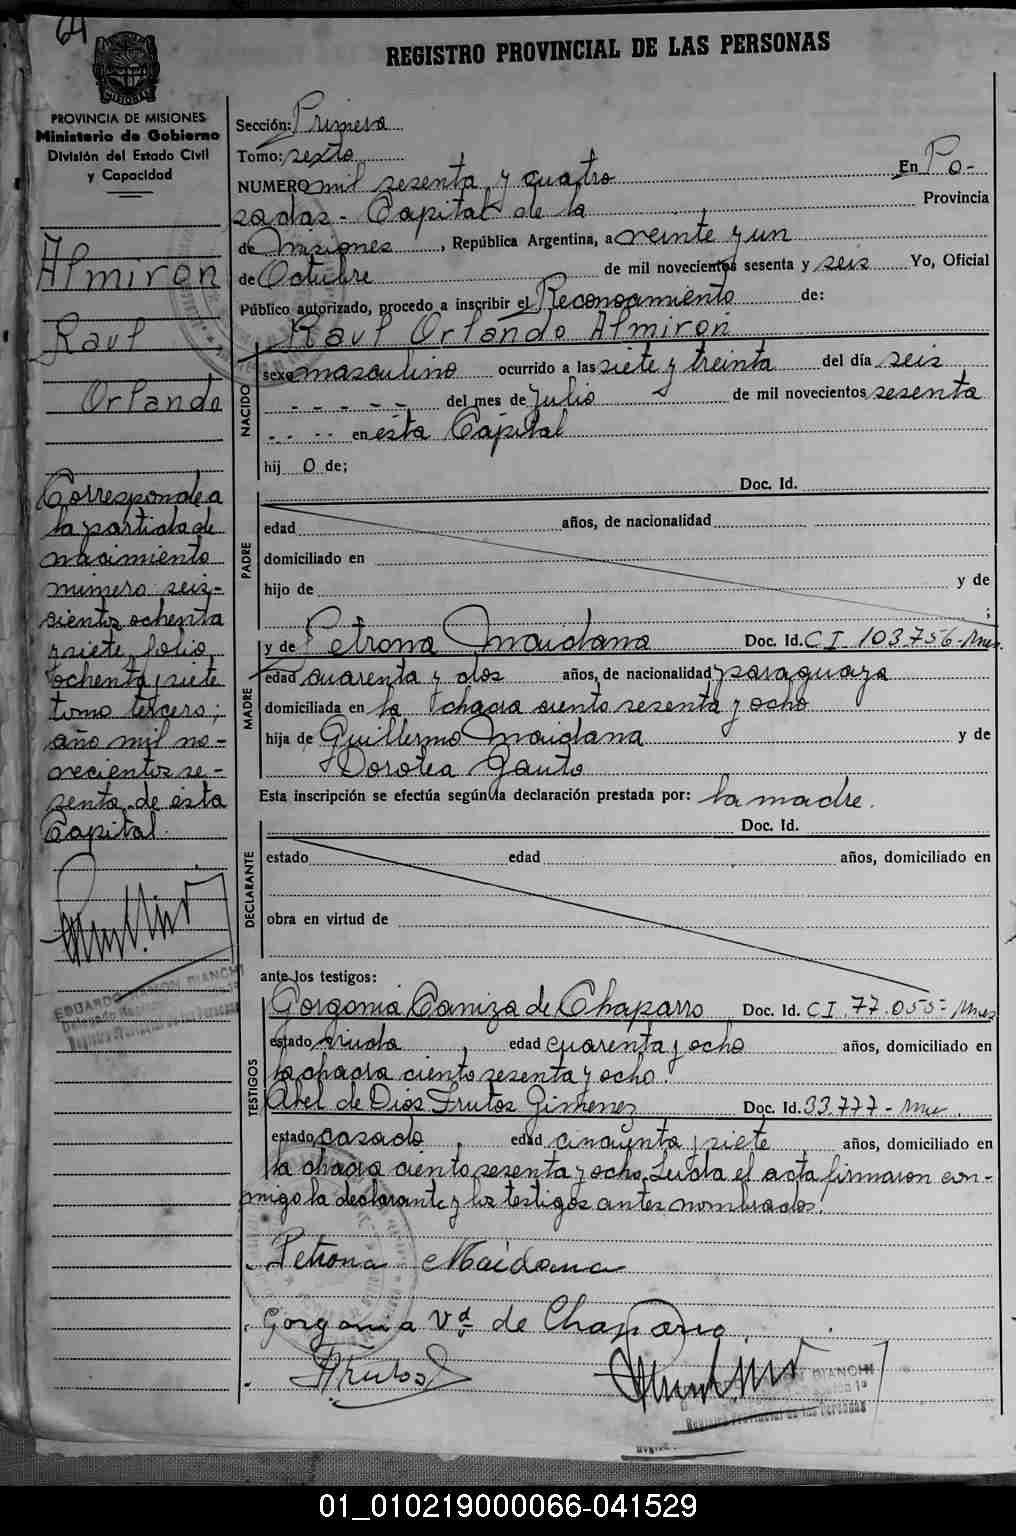 64
REGISTRO PROVINCIAL DE LAS PERSONAS
MISIONES
PROVINCIA DE MISIONES
Ministerio de Gobierno
División del Estado Civil
y Capacidad
Almiron
Raul
Orlando
Corresponde a
la partida de
nacimiento
número seis-
cientos ochenta
y siete, folio
ochenta y siete
tomo tercero;
año mil no-
vecientos se-
senta de esta
Capital.
EDUARDO RAMON BIANCHI
Sección: Primera
Tomo: sexto
NUMERO mil sesenta y cuatro En Po-
sadas - Capital de la Provincia
de Misiones, República Argentina, a veinte y un
de Octubre de mil novecientos sesenta y seis Yo, Oficial
Público autorizado, procedo a inscribir el Reconocimiento de:
Raul Orlando Almiron
NACIDO
sexo masculino ocurrido a las siete y treinta del día seis
- - - - - del mes de julio de mil novecientos sesenta
- - - - en esta Capital
hij o de;
Doc. Id.
PADRE
edad años, de nacionalidad
domiciliado en
hijo de y de
;
MADRE
y de Petrona Maidana Doc. Id. C I 103.756 - Mnes.
edad cuarenta y dos años, de nacionalidad paraguaya
domiciliada en la chacra ciento sesenta y ocho
hija de Guillermo Maidana y de
Dorotea Gauto
Esta inscripción se efectúa según la declaración prestada por: la madre.
Doc. Id.
DECLARANTE
estado edad años, domiciliado en
obra en virtud de
ante los testigos:
TESTIGOS
Gorgonia Caniza de Chaparro Doc. Id. C I. 77.055 - Mnes
estado viuda, edad cuarenta y ocho años, domiciliado en
la chacra ciento sesenta y ocho.
Abel de Dios Frutos Gimenez Doc. Id. 33.777 -
estado casado, edad cincuenta y siete años, domiciliado en
la chacra ciento sesenta y ocho. Leida el acta firmaron con-
migo la declarante y los testigos antes nombrados.
Petrona Maidana
Gorgonia Vda. de Chaparro.
AFrutosG
RAMON BIANCHI
Registro Provincial de las Personas
01_010219000066-041529